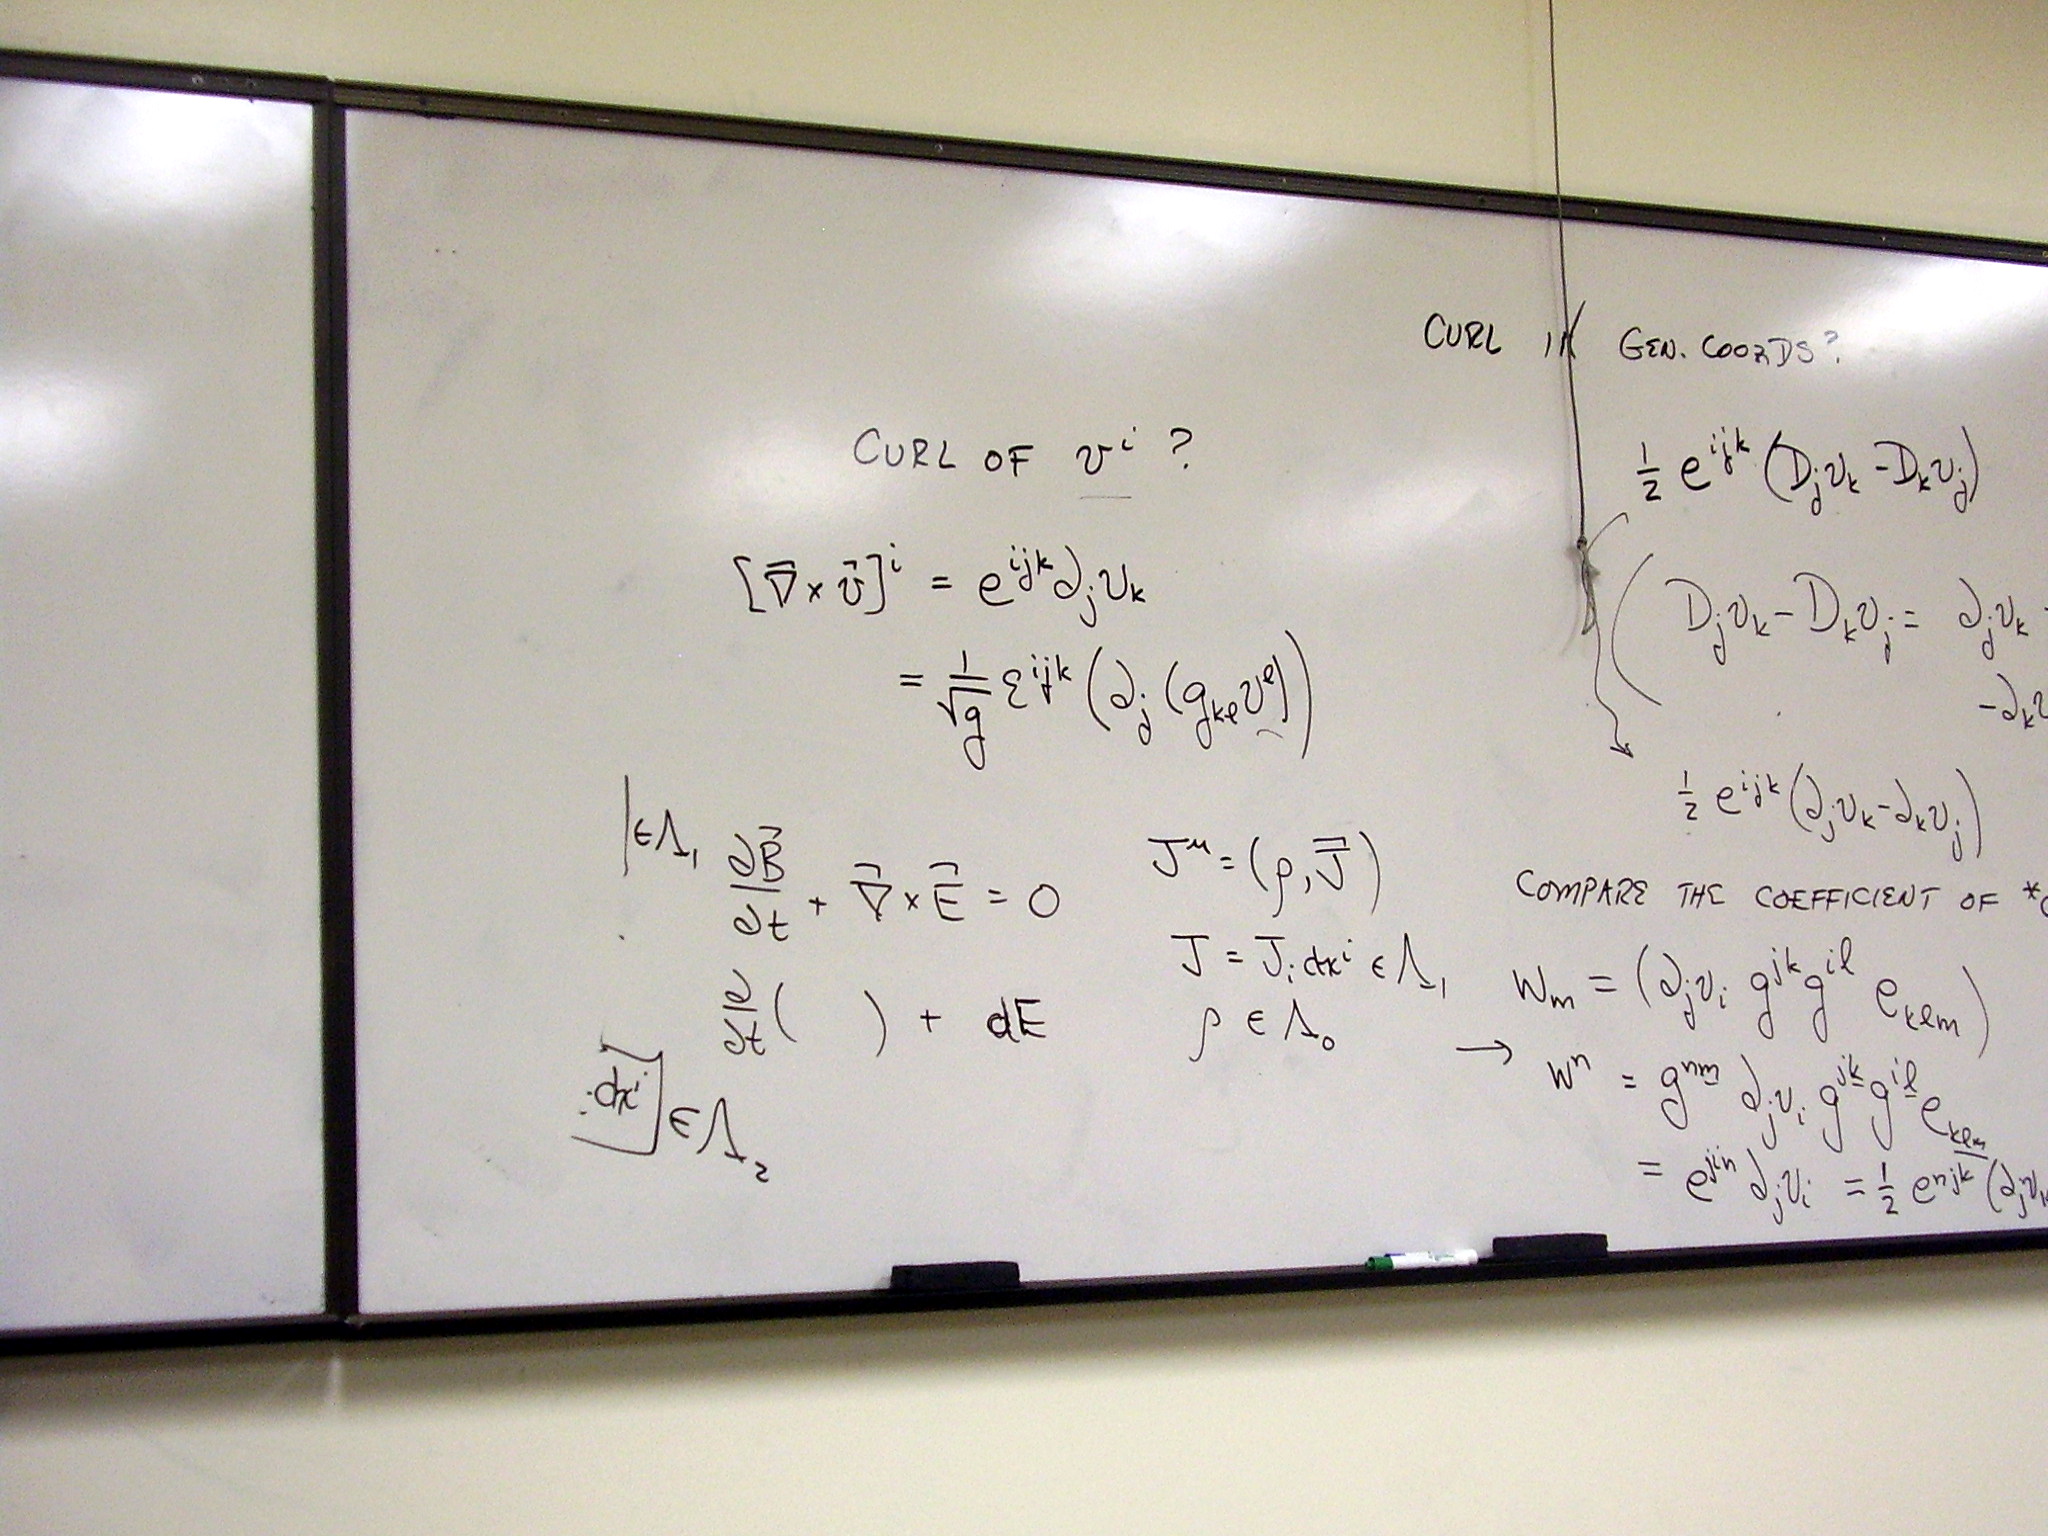 CURL OF vⁱ ?
[∇⃗ × v⃗]ⁱ = eⁱʲᵏ ∂ⱼ vₖ
= 1/√g εⁱʲᵏ (∂ⱼ (gₖₗ vˡ))
∈ Λ₁
∂B⃗/∂t + ∇⃗ × E⃗ = 0
∂/∂t ( ) + dE
dxⁱ] ∈ Λ₂
J^μ = (ρ, J⃗)
J = Jᵢ dxⁱ ∈ Λ₁
ρ ∈ Λ₀
CURL IN GEN. COORDS?
½ eⁱʲᵏ (Dⱼvₖ - Dₖvⱼ)
( Dⱼvₖ - Dₖvⱼ = ∂ⱼvₖ
-∂ₖv
½ eⁱʲᵏ (∂ⱼvₖ - ∂ₖvⱼ)
COMPARE THE COEFFICIENT OF *
Wₘ = (∂ⱼvᵢ gʲᵏ gⁱˡ eₖₗₘ)
→ Wⁿ = gⁿᵐ ∂ⱼvᵢ gʲᵏ gⁱˡ eₖₗₘ
= eʲⁱⁿ ∂ⱼvᵢ = ½ eⁿʲᵏ (∂ⱼvₖ